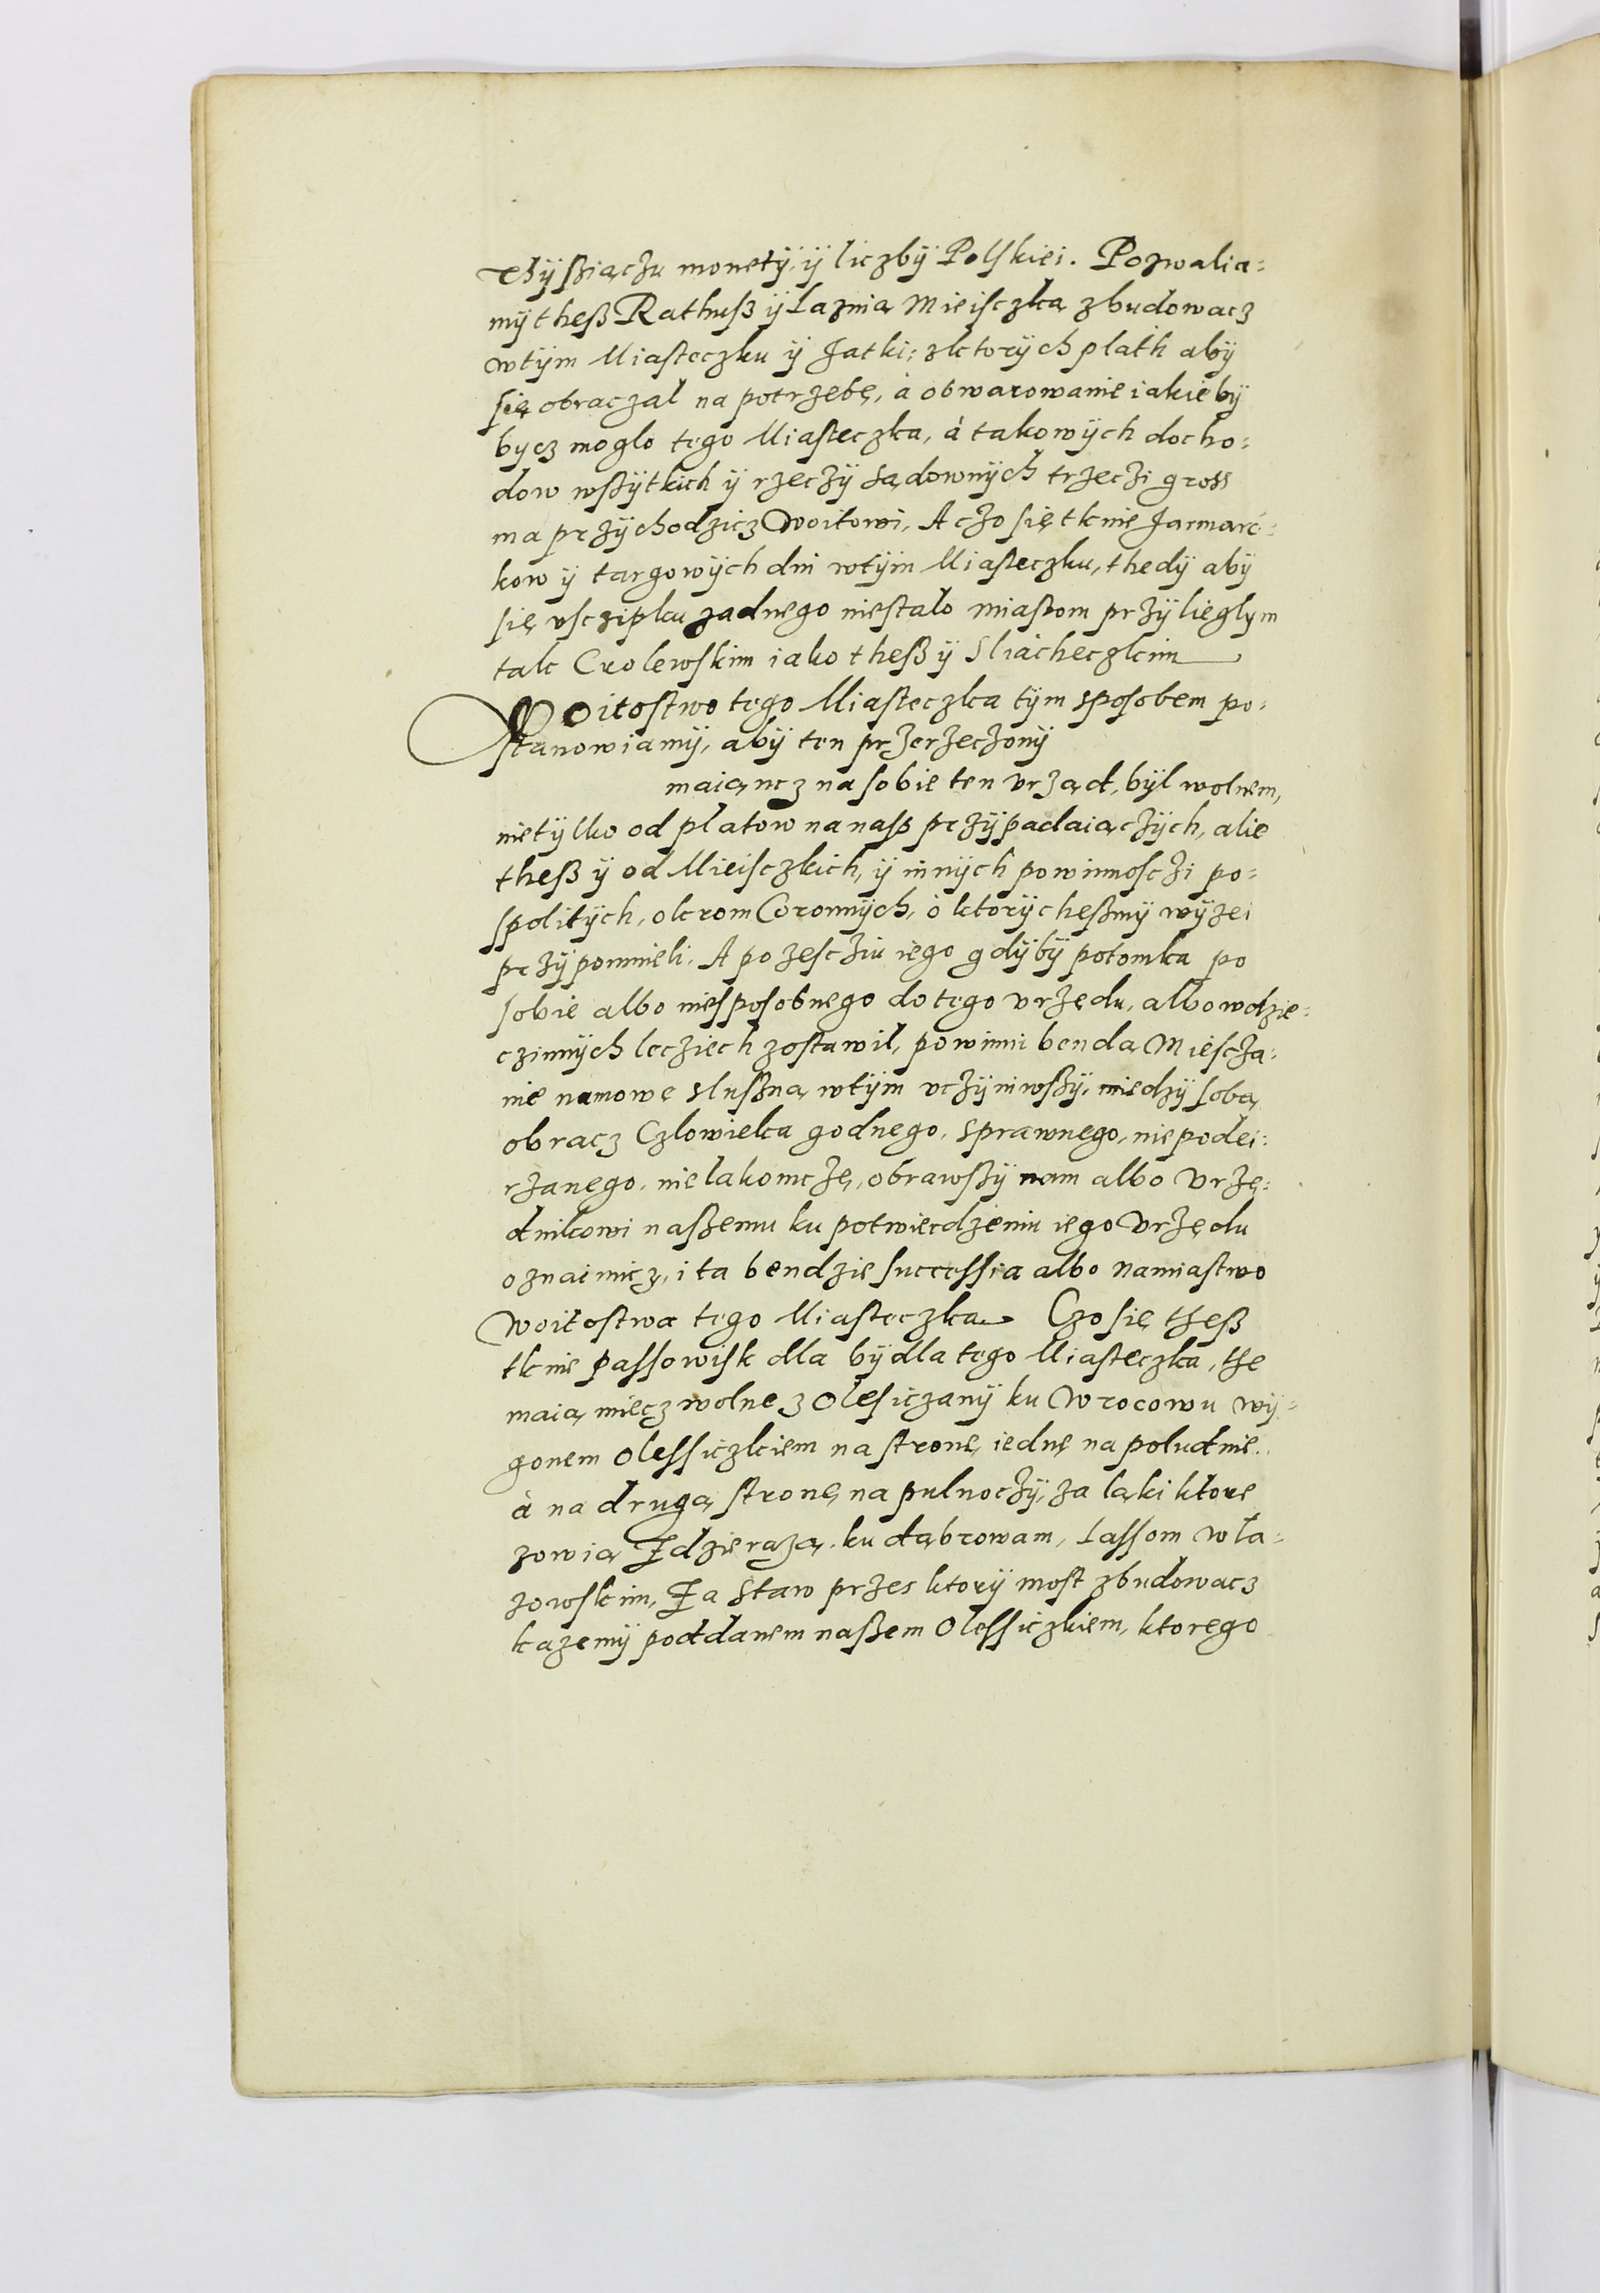 Thÿsziączu monetÿ, ÿ liczbÿ Polskiei. Pozwalia=
mÿ thesz Rathusz ÿ Laznią Mieisczką zbudowacz
wtÿm Miasteczku ÿ Jatki; zktorÿch plath abÿ
się obraczal na potrzebę, à obwarowanie iakiebÿ
bycz moglo tego Miasteczka, à takowÿch docho=
dow wszÿtkich ÿ rzeczÿ sądownÿch trzeczi gross
ma przÿchodzicz Woitowi, A czo się tknie Jarmarc=
kow ÿ targowÿch dni wtÿm Miasteczku, thedÿ abÿ
się vsczipku zadnego niestalo miastom przÿlieglym
tak Crolewskim iako thesz ÿ Sliácheczkim
Woitostwo tego Miasteczka tÿm sposobem po=
stanowiamÿ, abÿ ten przerzeczonÿ
maiąncz na sobie ten vrząd, bÿl wolnem,
nietÿlko od platow na nasz przÿpadaiączÿch, alie
thesz ÿ od Mieisczkich, ÿ innÿch powinnosczi po=
spolitÿch, okrom Coronnÿch, ò ktorÿchesmÿ wÿzei
przÿpomnieli. A po zesczin iego gdÿbÿ potomka po
sobie albo niesposobnego do tego vrzędu, albo wdzie=
czinnÿch lecziech zostawil, powinni benda Miescza=
nie namowę sluszną wtÿm vczÿniwszÿ, miedzÿ sobą
obracz Czlowieka godnego, sprawnego, niepodei=
rzanego, nielakomczę, obrawszÿ nam albo Vrzę=
dnikowi naszemu ku potwierdzeniu iego Vrzędu
oznaimicz, i ta bendzie successia albo namiastwo
Woitostwa tego Miasteczka. Czo się thesz
tknie passowisk dla bÿdla tego Miasteczka, the
maią miecz wolne z Olesiczanÿ ku Wrocowu wÿ=
gonem Olessiczkiem na stronę iednę na poludnie.
à na drugą stronę na pulnoczÿ, za ląki ktore
zowią Zdzierazą, ku dąbrowam, Lassom Wla=
zowskim, Za staw przes ktorÿ most zbudowacz
kazemÿ poddanem naszem Olessiczkiem, ktorego